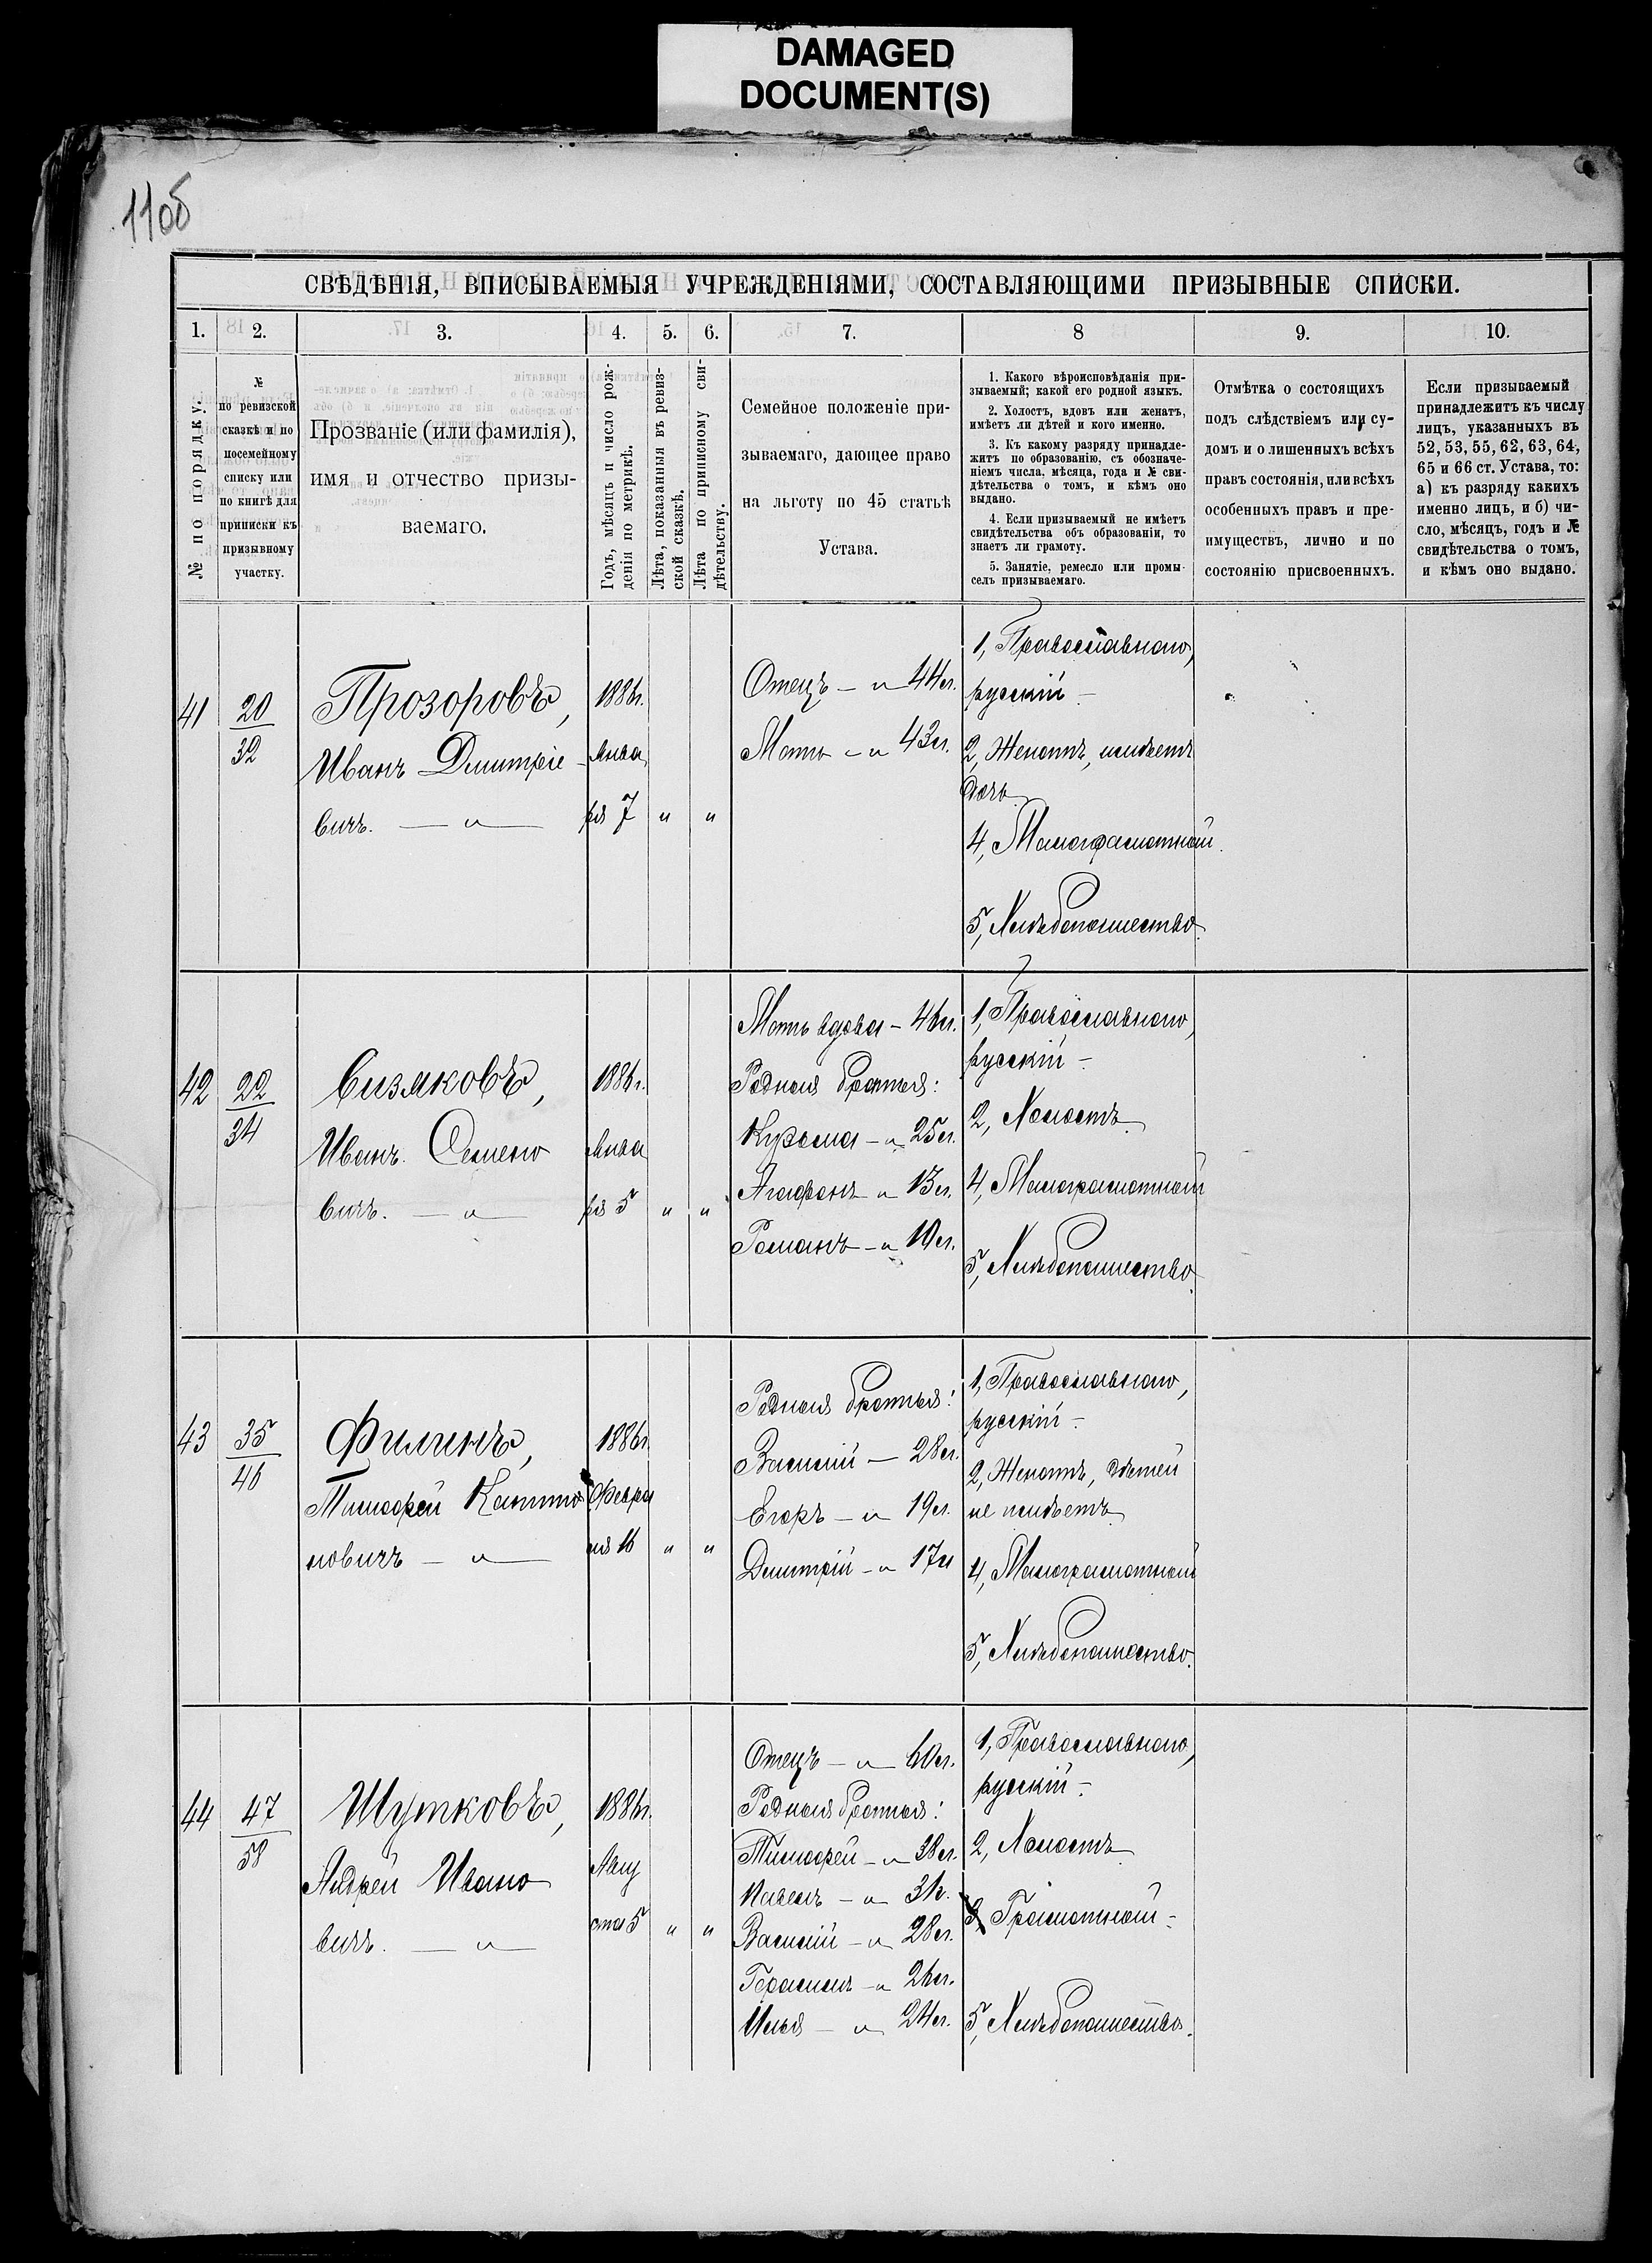 DAMAGED
DOCUMENT(S)
110б
СВѢДѢНІЯ, ВПИСЫВАЕМЫЯ УЧРЕЖДЕНІЯМИ, СОСТАВЛЯЮЩИМИ ПРИЗЫВНЫЕ СПИСКИ.
1. 2. 3. 4. 5. 6. 7. 8 9. 10.
№ по порядку.
№
по ревизской
сказкѣ и по
посемейному
списку или
по книгѣ для
приписки къ
призывному
участку.
Прозваніе (или фамилія),
имя и отчество призы-
ваемаго.
Годъ, мѣсяцъ и число рож-
денія по метрикѣ.
Лѣта, показанныя въ ревиз-
ской сказкѣ.
Лѣта по приписному сви-
дѣтельству.
Семейное положеніе при-
зываемаго, дающее право
на льготу по 45 статьѣ
Устава.
1. Какого вѣроисповѣданія при-
зываемый; какой его родной языкъ.
2. Холостъ, вдовъ или женатъ,
имѣетъ ли дѣтей и кого именно.
3. Къ какому разряду принадле-
житъ по образованію, съ обозначе-
ніемъ числа, мѣсяца, года и № сви-
дѣтельства о томъ, и кѣмъ оно
выдано.
4. Если призываемый не имѣетъ
свидѣтельства объ образованіи, то
знаетъ ли грамоту.
5. Занятіе, ремесло или промы-
селъ призываемаго.
Отмѣтка о состоящихъ
подъ слѣдствіемъ или су-
домъ и о лишенныхъ всѣхъ
правъ состоянія, или всѣхъ
особенныхъ правъ и пре-
имуществъ, лично и по
состоянію присвоенныхъ.
Если призываемый
принадлежитъ къ числу
лицъ, указанныхъ въ
52, 53, 55, 62, 63, 64,
65 и 66 ст. Устава, то:
а) къ разряду какихъ
именно лицъ, и б) чи-
сло, мѣсяцъ, годъ и №
свидѣтельства о томъ,
и кѣмъ оно выдано.
41
20
32
Прозоровъ,
Иванъ Дмитріе-
вичъ. — „ —
1886г.
Янва
ря 7
„ „
Отецъ — „ 44л.
Мать — „ 43л.
1, Православнаго,
русскій —
2, Женатъ, имѣетъ
дочь
4, Малограмотный.
5, Хлѣбопашество.
42
22
34
Сизяковъ,
Иванъ Семено
вичъ. — „ —
1886г.
Янва
ря 5
„ „
Мать вдова — 46л.
Родныя братья:
Кузьма — „ 25л.
Агафонъ — „ 13л.
Романъ — „ 10л.
1, Православнаго,
русскій —
2, Холостъ.
4, Малограмотный
5, Хлѣбопашество.
43
35
46
Филинъ,
Тимофей Капито
новичъ — „ —
1886г.
Февра
ля 16
„ „
Родныя братья:
Василій — 28л.
Егоръ — „ 19л.
Дмитрій — „ 17л
1, Православнаго,
русскій —
2, Женатъ, дѣтей
не имѣетъ
4, Малограмотный
5, Хлѣбопашество.
44
47
58
Шутковъ,
Андрей Ивано
вичъ. — „ —
1886г.
Авгу
ста 5
„ „
Отецъ — „ 60л.
Родныя братья:
Тимофей — „ 38л.
Павелъ — „ 31г.
Василій — „ 28л.
Герасимъ — „ 26л.
Илья — „ 24л.
1, Православнаго,
русскій —
2, Холостъ.
Грамотный —
5, Хлѣбопашество.